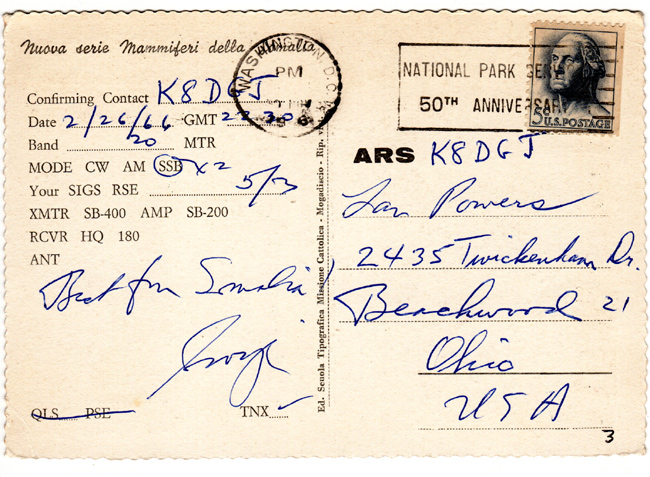 Nuova serie Mammiferi della Somalia
Confirming Contact K8DGJ
Date 2/26/66 GMT 22 30
Band 20 MTR
MODE CW AM SSB X2
Your SIGS RSE 5/3
XMTR SB-400 AMP SB-200
RCVR HQ 180
ANT
Best from Somalia
QLS PSE TNX ✓
Ed. Scuola Tipografica Missione Cattolica - Mogadiscio - Rip.
WASHINGTON D.C.
PM
NATIONAL PARK SERVICE
50TH ANNIVERSARY
5c U.S. POSTAGE
ARS K8DGJ
Powers
2435 Twickenham Dr.
Beachwood 21
Ohio
USA
3